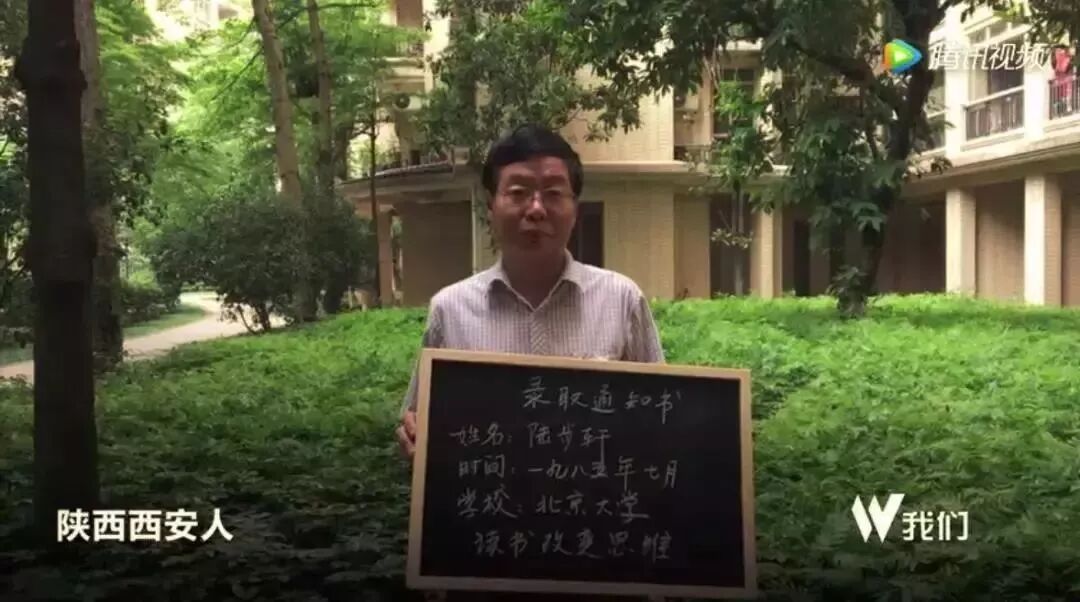 腾讯视频
录取通知书
姓名：陆步轩
时间：一九八五年七月
学校：北京大学
读书改变思维
陕西西安人
W我们